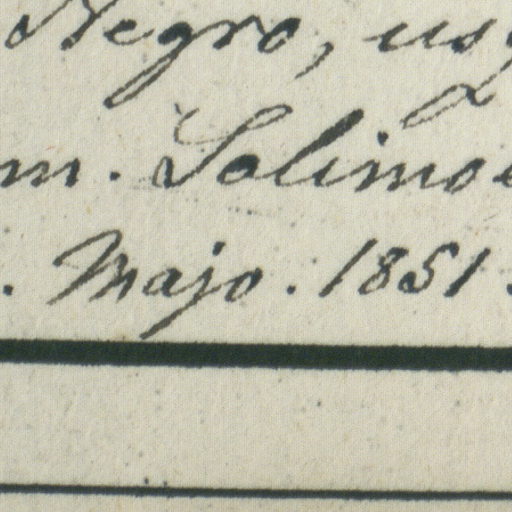 Negro, usq
m. Solimoe
. Majo. 1851.